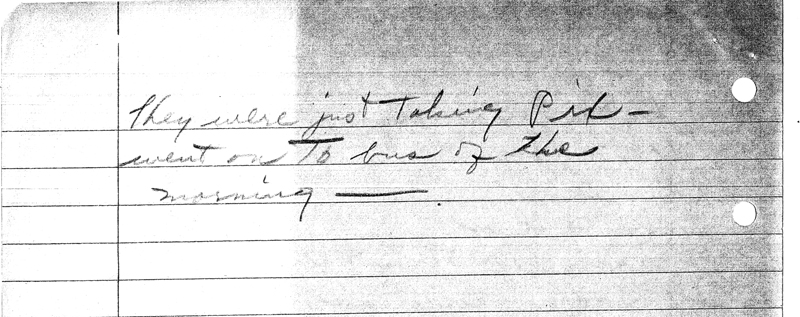 They were just taking Pix —
went on to bus of the
morning —.